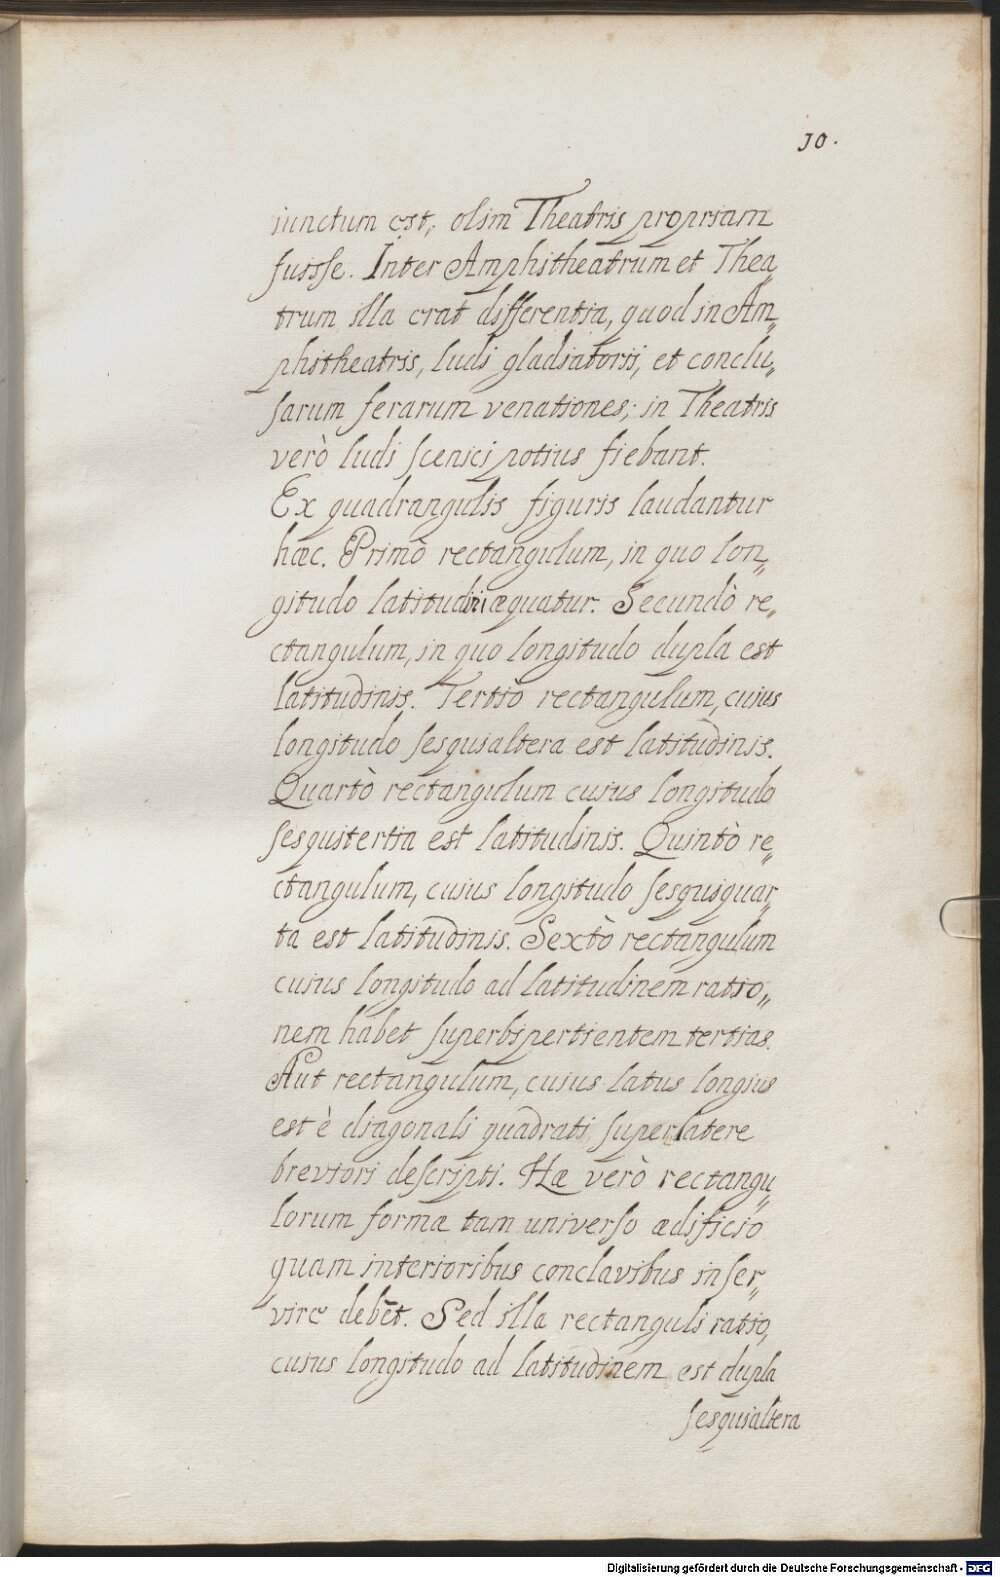 10.
iunctum est, olim Theatris propriam
fuisse. Inter Amphitheatrum et Thea„
trum illa erat differentia, quod in Am„
phitheatris, ludi gladiatorii, et conclu„
sarum ferarum venationes; in Theatris
verò ludi scenici potius fiebant.
Ex quadrangulis figuris laudantur
hæc. Primò rectangulum, in quo lon„
gitudo latitudini æquatur. Secundò re„
ctangulum, in quo longitudo dupla est
latitudinis. Tertiò rectangulum, cuius
longitudo sesquialtera est latitudinis.
Quartò rectangulum cuius longitudo
sesquitertia est latitudinis. Quintò re„
ctangulum, cuius longitudo sesquiquar„
ta est latitudinis. Sextò rectangulum
cuius longitudo ad latitudinem ratio„
nem habet superbipertientem tertias.
Aut rectangulum, cuius latus longius
est è diagonali quadrati super latere
breviori descripti. Hæ verò rectangu„
lorum formæ tam universo ædificio
quam interioribus conclavibus inser„
vire debēt. Sed illa rectanguli ratio,
cuius longitudo ad latitudinem est dupla
sesquialtera
Digitalisierung gefördert durch die Deutsche Forschungsgemeinschaft - DFG